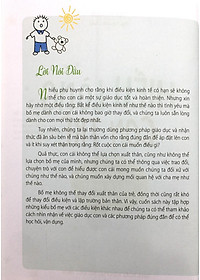 Lời Nói Đầu
Nhiều phụ huynh cho rằng khi điều kiện kinh tế có hạn sẽ không
thể cho con cái một sự giáo dục tốt và hoàn thiện. Nhưng xin
hãy nhớ một điều rằng: Bất kể điều kiện kinh tế như thế nào thì tình yêu mà
bố mẹ dành cho con cái không bao giờ thay đổi, và chúng ta luôn sẵn lòng
dành cho con mọi thứ tốt đẹp nhất.
Tuy nhiên, chúng ta lại thường dùng phương pháp giáo dục và nhận
thức đã ăn sâu bén rễ mà bản thân vốn cho rằng đúng đắn để áp đặt lên con
và ít khi suy xét thận trọng rằng: Rốt cuộc con cái muốn điều gì?
Quả thực, con cái không thể lựa chọn xuất thân, cũng như không thể
lựa chọn bố mẹ của mình, nhưng chúng ta có thể thông qua việc trao đổi,
trò chuyện với con để hiểu được con cái mong muốn chúng ta đối xử với
chúng như thế nào, và chúng muốn xây dựng mối quan hệ với cha mẹ như
thế nào.
Bố mẹ không thể thay đổi xuất thân của trẻ, đồng thời cũng rất khó
để thay đổi điều kiện và lập trường bản thân. Vì vậy, cuốn sách này tập hợp
những kiểu bố mẹ với các điều kiện khác nhau để chúng ta có thể tham khảo
cách nhìn nhận về việc giáo dục con và các phương pháp đúng đắn để có thể
học hỏi, vận dụng.